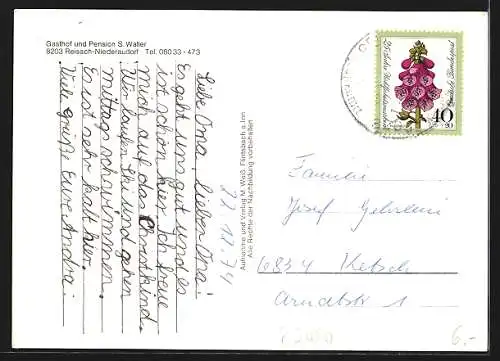 Gasthof und Pension S. Waller
8203 Reisach-Niederaudorf Tel. 080 33 - 473
Liebe Oma! Lieber Opa!
Es geht uns gut und es
ist schön hier. Ich freue
mich auf das Christkind.
Wir laufen Ski und gehen
mittags schwimmen.
Es ist sehr kalt hier.
Viele Grüße Eure Andrea
22 12 74
Aufnahme und Verlag M. Weiß, Flintsbach a. Inn
Alle Rechte der Nachbildung vorbehalten
Deutsche Bundespost
40
+20
Familie
Josef
6834 Ketsch
Arndtstr 1
6,-